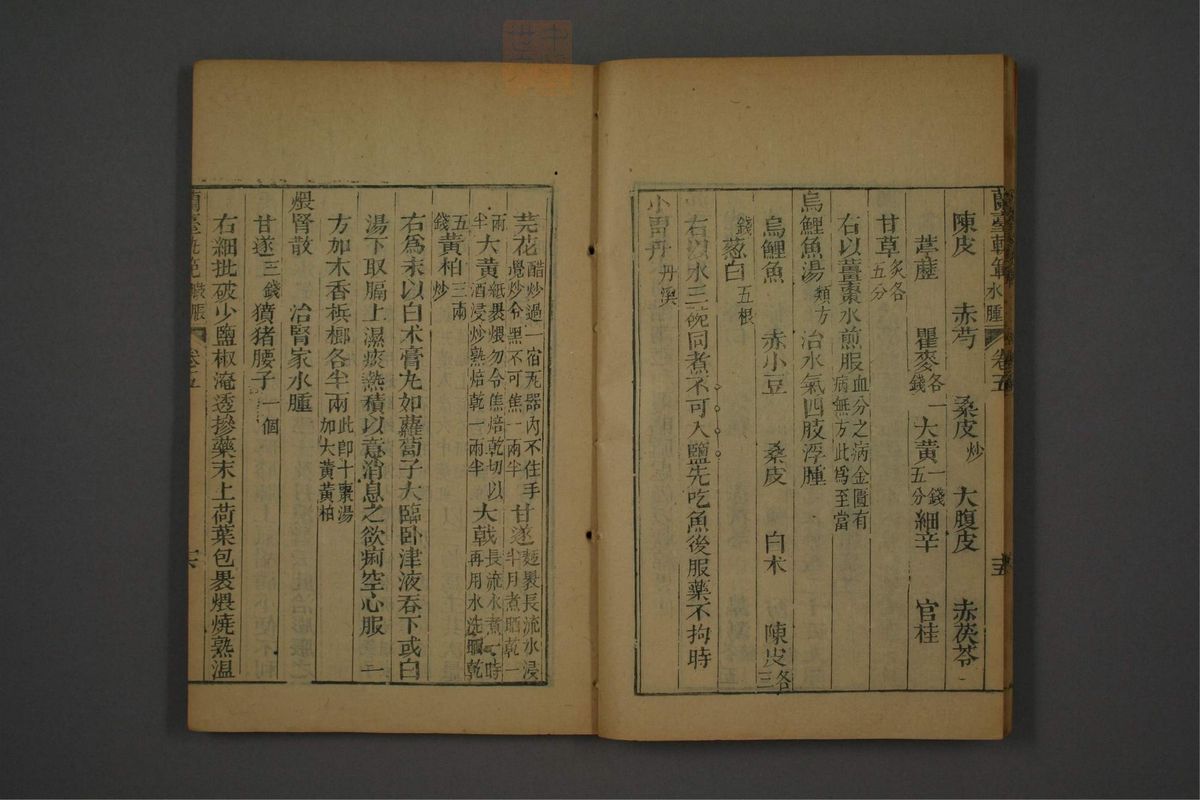 蘭臺軌範 水腫 卷五 十五
陳皮 赤芍 桑皮炒 大腹皮 赤茯苓
葶藶 瞿麥各一錢 大黃一錢五分 細辛 官桂
甘草炙各五分
右以薑棗水煎服血分之病金匱有病無方此爲至當
烏鯉魚湯類方 治水氣四肢浮腫
烏鯉魚 赤小豆 桑皮 白朮 陳皮各三
錢 葱白五根
右以水三碗同煮不可入鹽先吃魚後服藥不拘時
小胃丹丹溪
芫花醋炒過一宿瓦器內不住手攪炒令黑不可焦一兩半 甘遂麵裹長流水浸半月煮晒乾一
兩半 大黃紙裹煨勿令焦焙乾切以酒浸炒熟焙乾一兩半 大戟長流水煮一時再用水洗晒乾
五錢 黃柏三兩炒
右爲末以白朮膏丸如蘿蔔子大臨臥津液吞下或白
湯下取膈上濕痰熱積以意消息之欲痢空心服 一
方加木香檳榔各半兩此卽十棗湯加大黃黃柏
煨腎散 治腎家水腫
甘遂三錢 㹠猪腰子一個
右細批破少鹽椒淹透摻藥末上荷葉包裹煨燒熟溫
蘭臺軌範 臌脹 卷五 十六